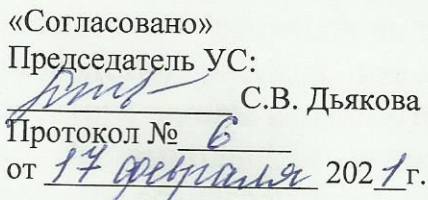 «Согласовано»
Председатель УС:
С.В. Дьякова
Протокол № 6
от 17 февраля 2021 г.